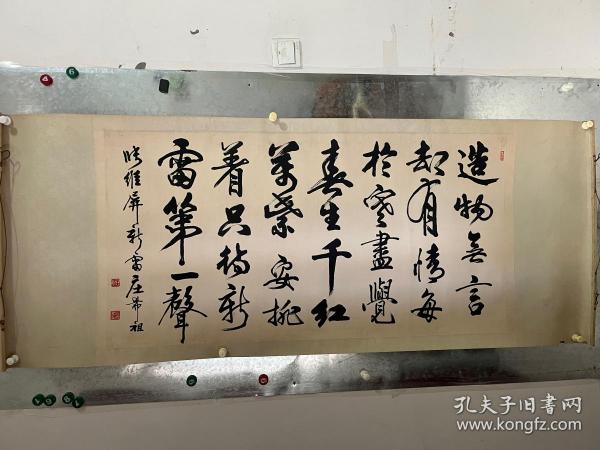 造物無言
却有情每
於寒盡覺
春生千红
萬紫安排
着只待新
雷第一聲
張維屏新雷庄希祖
孔夫子旧书网
www.kongfz.com